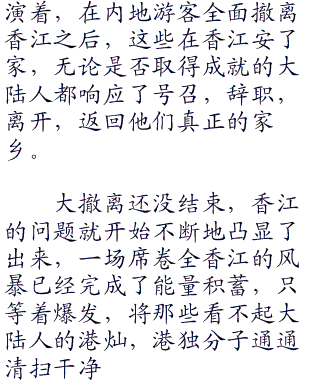 演着，在内地游客全面撤离
香江之后，这些在香江安了
家，无论是否取得成就的大
陆人都响应了号召，辞职，
离开，返回他们真正的家
乡。
大撤离还没结束，香江
的问题就开始不断地凸显了
出来，一场席卷全香江的风
暴已经完成了能量积蓄，只
等着爆发，将那些看不起大
陆人的港灿，港独分子通通
清扫干净